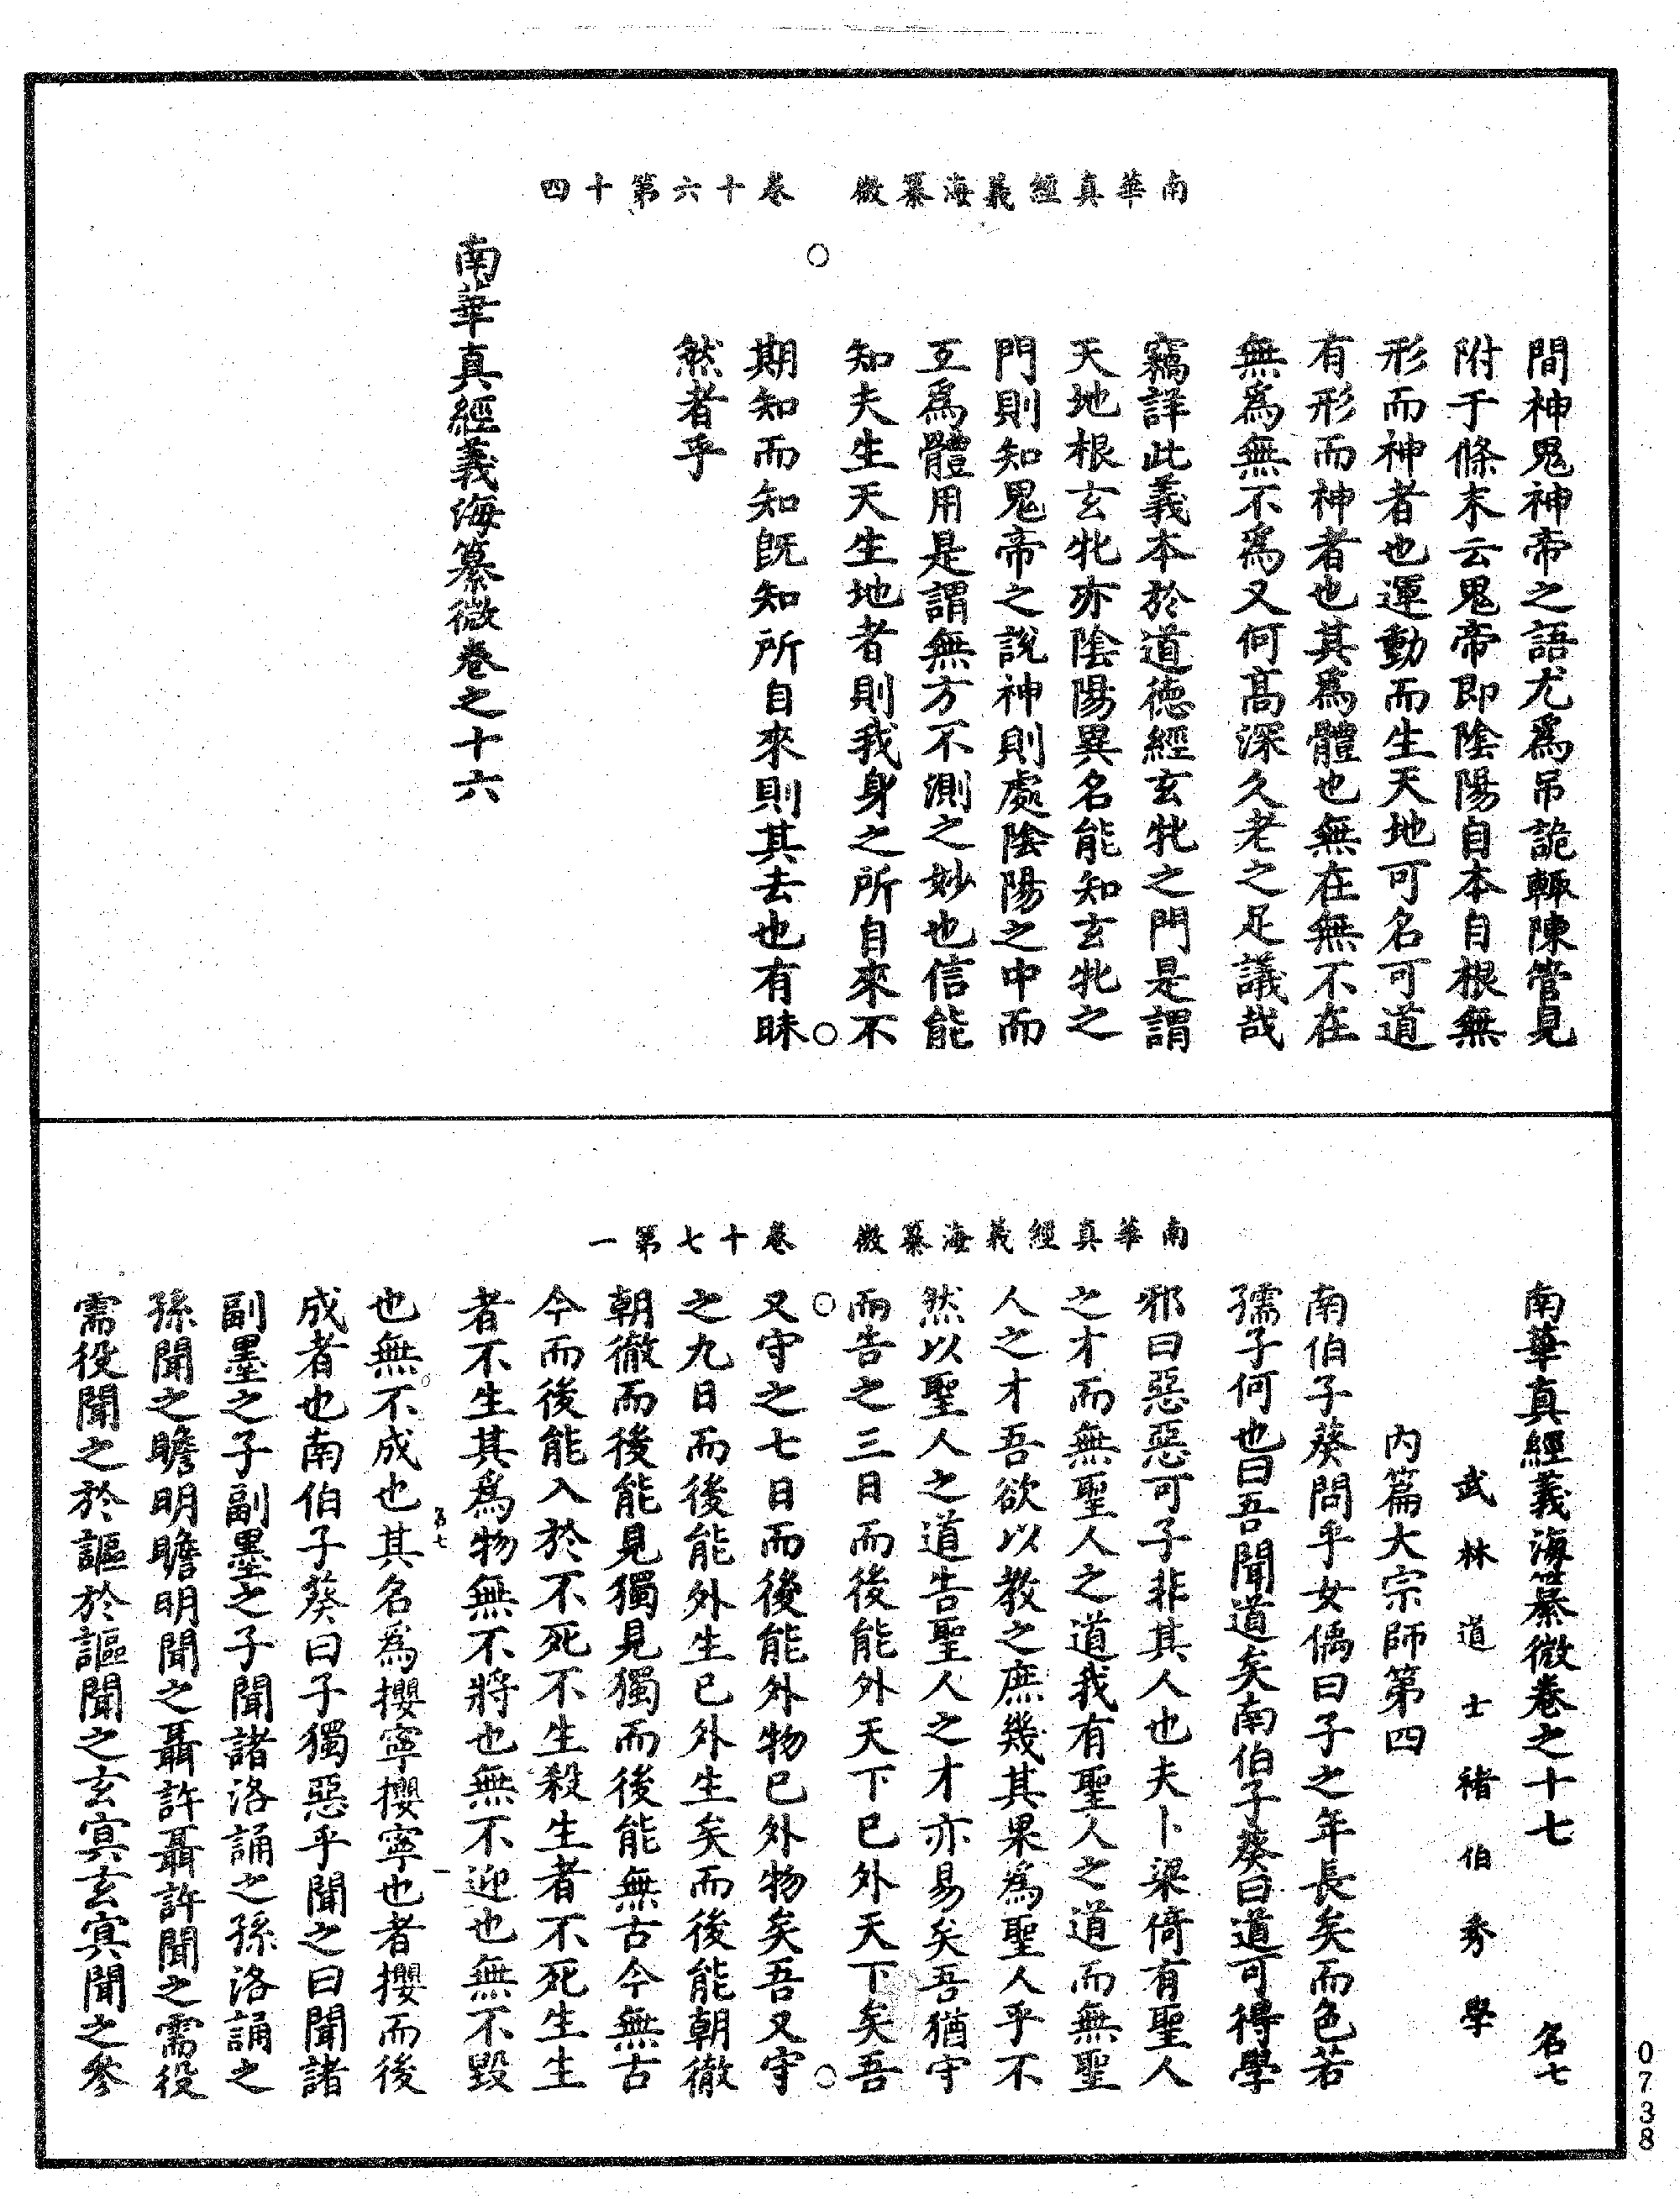 南華真經義海纂微　卷十六第十四
間神鬼神帝之語尤爲吊詭輒陳管見
附于條末云鬼帝即陰陽自本自根無
形而神者也運動而生天地可名可道
有形而神者也其爲體也無在無不在
無爲無不爲又何高深久老之足議哉
竊詳此義本於道德經玄牝之門是謂
天地根玄牝亦陰陽異名能知玄牝之
門則知鬼帝之說神則處陰陽之中而
互爲體用是謂無方不測之妙也信能
知夫生天生地者則我身之所自來不
期知而知旣知所自來則其去也有昧
然者乎
南華真經義海纂微卷之十六
南華真經義海纂微　卷十七第一
南華真經義海纂微卷之十七　名七
武林道士褚伯秀學
內篇大宗師第四
南伯子葵問乎女偊曰子之年長矣而色若
孺子何也曰吾聞道矣南伯子葵曰道可得學
邪曰惡惡可子非其人也夫卜梁倚有聖人
之才而無聖人之道我有聖人之道而無聖
人之才吾欲以教之庶幾其果爲聖人乎不
然以聖人之道告聖人之才亦易矣吾猶守
而告之三日而後能外天下已外天下矣吾
又守之七日而後能外物已外物矣吾又守
之九日而後能外生已外生矣而後能朝徹
朝徹而後能見獨見獨而後能無古今無古
今而後能入於不死不生殺生者不死生生
者不生其爲物無不將也無不迎也無不毀
名七　一
也無不成也其名爲攖寧攖寧也者攖而後
成者也南伯子葵曰子獨惡乎聞之曰聞諸
副墨之子副墨之子聞諸洛誦之孫洛誦之
孫聞之瞻明瞻明聞之聶許聶許聞之需役
需役聞之於謳於謳聞之玄冥玄冥聞之參
0738